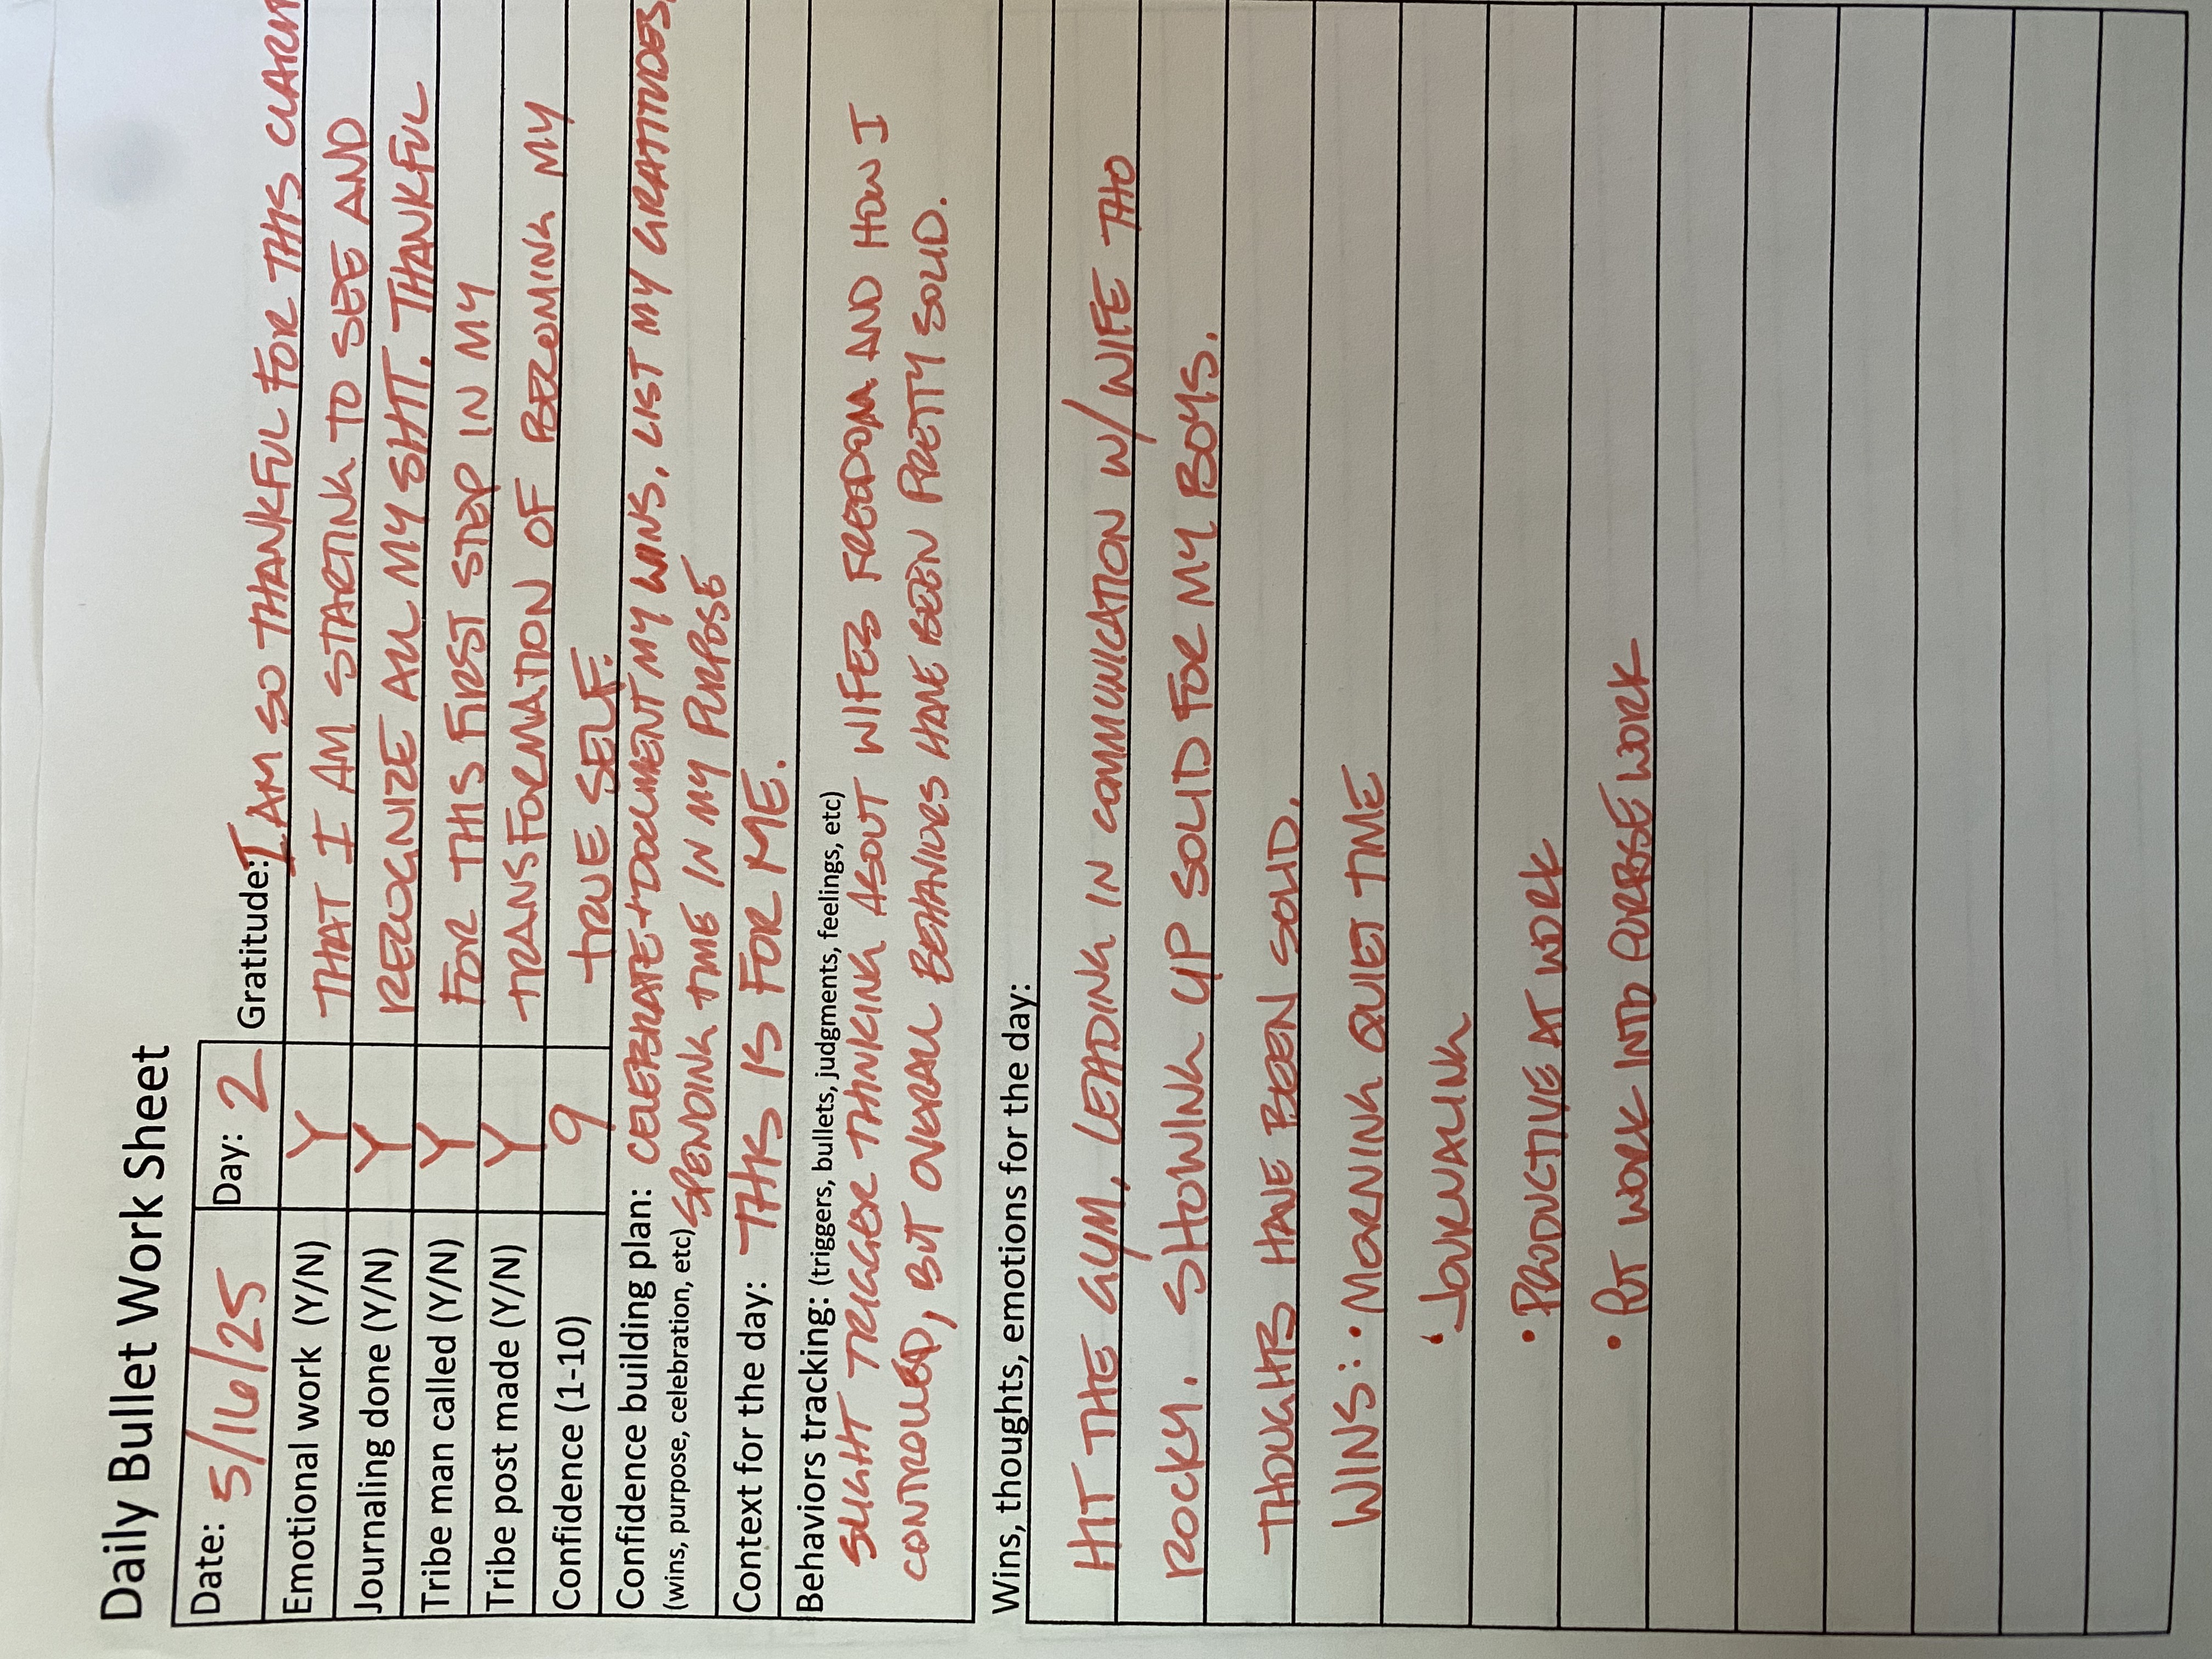 Daily Bullet Work Sheet
Date: 5/16/25 Day: 2 Gratitude: I AM SO THANKFUL FOR THIS
Emotional work (Y/N) Y THAT I AM STARTING TO SEE AND
Journaling done (Y/N) Y RECOGNIZE ALL MY SHIT. THANKFUL
Tribe man called (Y/N) Y FOR THIS FIRST STEP IN MY
Tribe post made (Y/N) Y TRANSFORMATION OF BECOMING MY
Confidence (1-10) 9 TRUE SELF.
Confidence building plan: CELEBRATE + DOCUMENT MY WINS, LIST MY GRATITUDES,
(wins, purpose, celebration, etc) SPENDING TIME IN MY PURPOSE
Context for the day: THIS IS FOR ME.
Behaviors tracking: (triggers, bullets, judgments, feelings, etc)
SLIGHT TRIGGER THINKING ABOUT WIFES FREEDOM AND HOW I
CONTROLLED, BUT OVERALL BEHAVIORS HAVE BEEN PRETTY SOLID.
Wins, thoughts, emotions for the day:
HIT THE GYM, LEADING IN COMMUNICATION W/ WIFE THO
ROCKY. SHOWING UP SOLID FOR MY BOYS.
THOUGHTS HAVE BEEN SOLID.
WINS: • MORNING QUIET TIME
• JOURNALING
• PRODUCTIVE AT WORK
• PUT WORK INTO PURPOSE WORK